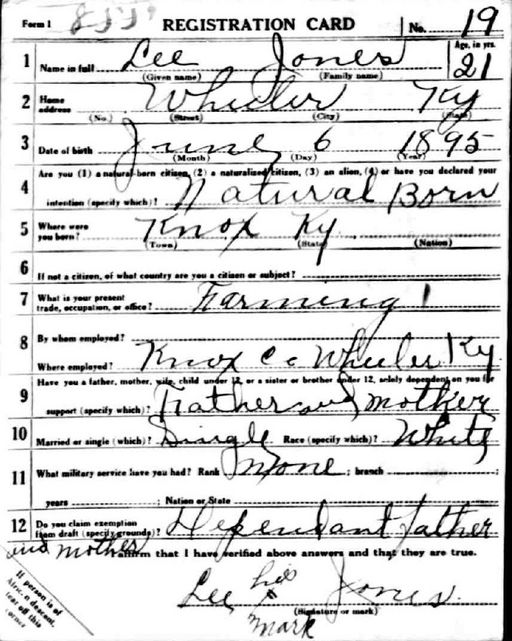 Form 1 REGISTRATION CARD No. 19
1 Name in full Lee Jones Age, in yrs. 21
(Given name) (Family name)
2 Home address Wheeler Ky
(No.) (Street) (City) (State)
3 Date of birth June 6 1895
(Month) (Day) (Year)
4 Are you (1) a natural-born citizen, (2) a naturalized citizen, (3) an alien, (4) or have you declared your
intention (specify which)? Natural Born
5 Where were you born? Knox Ky
(Town) (State) (Nation)
6 If not a citizen, of what country are you a citizen or subject?
7 What is your present trade, occupation, or office? Farming 1
8 By whom employed?
Where employed? Knox Co Wheeler Ky.
9 Have you a father, mother, wife, child under 12, or a sister or brother under 12, solely dependent on you for
support (specify which)? Father and mother
10 Married or single (which)? Single Race (specify which)? White
11 What military service have you had? Rank None ; branch ;
years ; Nation or State
12 Do you claim exemption from draft (specify grounds)? Dependant father
and mother
I affirm that I have verified above answers and that they are true.
Lee his x Jones.
(Signature or mark)
mark
If person is of
African descent,
tear off this
corner